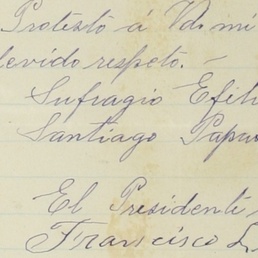 Protesto á Vd. mi
devido respeto. –
Sufragio Efect
Santiago Papas
El Presidente
Francisco L.